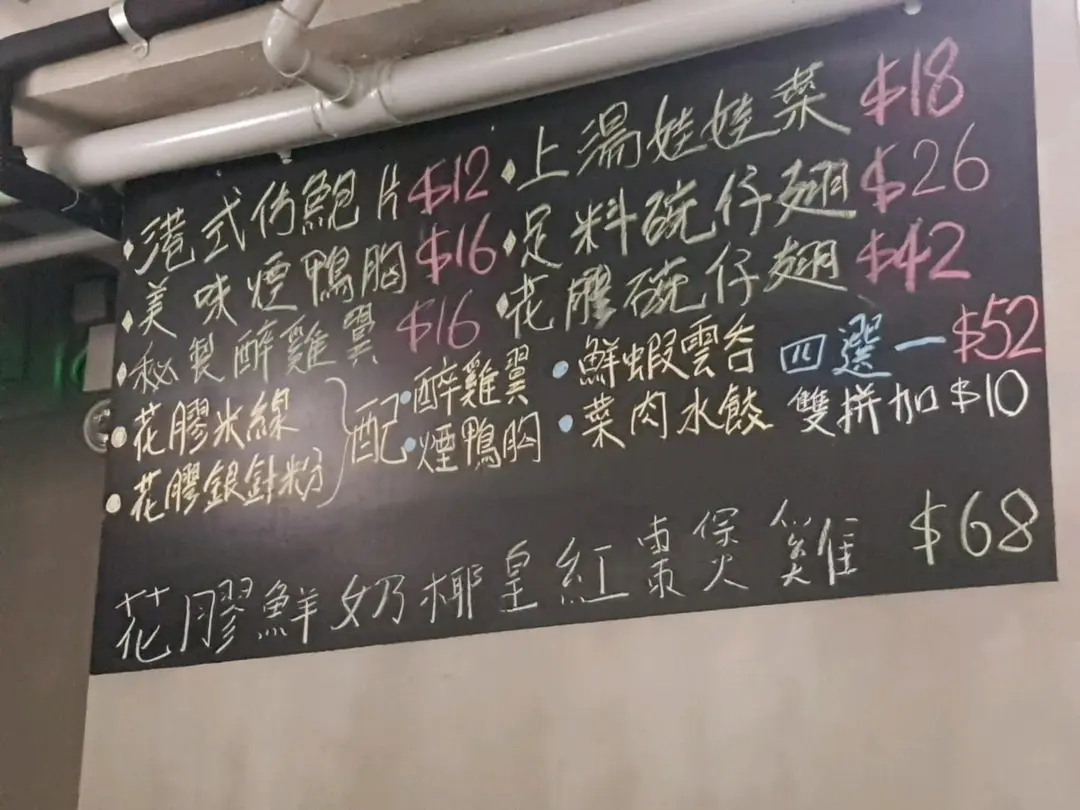 港式仿鮑片 $12
美味煙鴨胸 $16
秘製醉雞翼 $16
上湯娃娃菜 $18
足料碗仔翅 $26
花膠碗仔翅 $42
花膠米線
花膠銀針粉
配
醉雞翼
煙鴨胸
鮮蝦雲吞
菜肉水餃
四選一 $52
雙拼加 $10
花膠鮮奶椰皇紅棗煲雞 $68